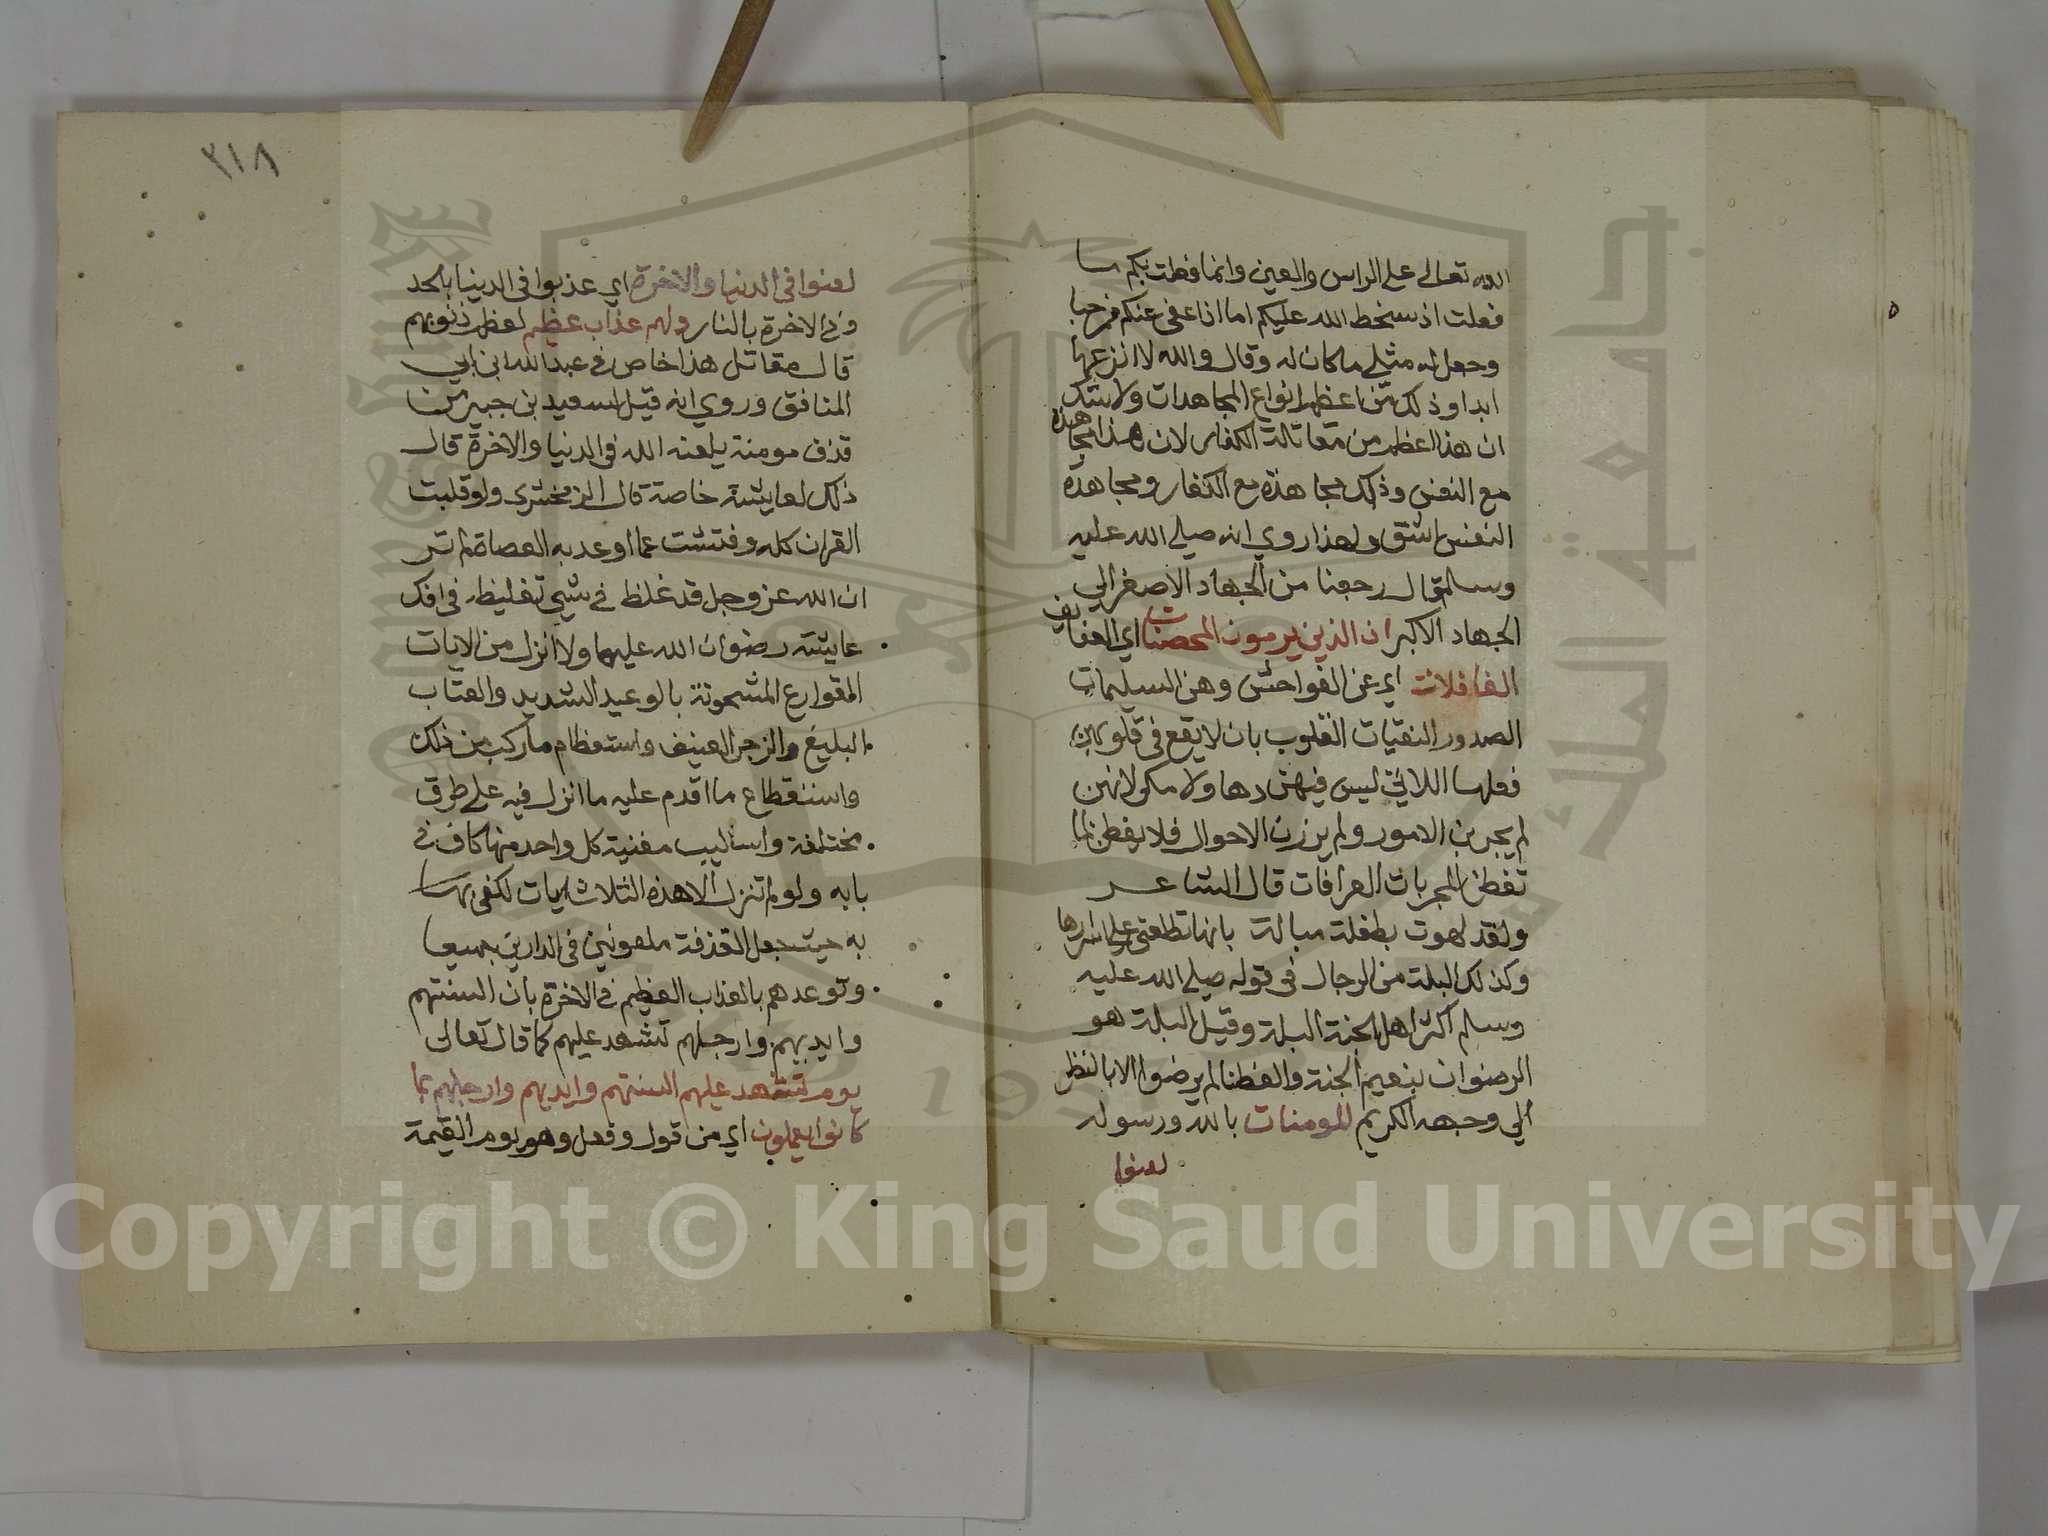 الله تعالى على الراس والعين وانما فعلت بكم ما
فعلت اذ سخط الله عليكم اما اذا عفى عنكم فمرحبا
وجعل له مثلي ما كان له وقال والله لا انزعها
ابدا وذلك من اعظم انواع المجاهدات ولا شك
ان هذا اعظم من مقاتلة الكفار لان هذا مجاهدة
مع النفس وذلك مجاهدة مع الكفار ومجاهدة
النفس اشق ولهذا روي انه صلى الله عليه
وسلم قال رجعنا من الجهاد الاصغر الى
الجهاد الاكبر ان الذين يرمون المحصنات اي العفايف
الغافلات اي عن الفواحش وهن السليمات
الصدور النقيات القلوب بان لا يقع في قلوبهن
فعلها اللاتي ليس فيهن دها ولا مكر لانهن
لم يجربن الامور ولم يرزن الاحوال فلا يفطن لما
تفطن المجربات العرافات قال الشاعر
ولقد لهوت بطفلة ميالة بلها تطلعني على اسرارها
وكذلك البله من الرجال في قوله صلى الله عليه
وسلم اكثر اهل الجنة البله وقيل البله هو
الرضوان بنعيم الجنة والفطنا لم يرضوا الا بالنظر
الى وجهه الكريم المومنات بالله ورسوله
لعنوا
٣١٨
لعنوا في الدنيا والاخرة اي عذبوا في الدنيا بالحد
وفي الاخرة بالنار ولهم عذاب عظيم لعظم ذنوبهم
قال مقاتل هذا خاص في عبد الله ابن ابي
المنافق وروي انه قيل لسعيد بن جبير من
قذف مومنة يلعنه الله في الدنيا والاخرة قال
ذلك لعايشة خاصة قال الزمخشري ولو قلبت
القران كله وفتشت عما اوعد به العصاة لم تر
ان الله عز وجل قد غلظ في شيي تغليظه في افك
عايشة رضوان الله عليهما ولا انزل من الايات
القوارع المشحونة بالوعيد الشديد والعتاب
البليغ والزجر العنيف واستعظام ما ركب من ذلك
واستفظاع ما اقدم عليه ما انزل فيه على طرق
مختلفة واساليب مفنية كل واحد منها كاف في
بابه ولو لم تنزل الا هذه الثلاث ايات لكفى بها
به حيث جعل القذفة ملعونين في الدارين جميعا
وتوعدهم بالعذاب العظيم في الاخرة بان السنتهم
وايديهم وارجلهم تشهد عليهم كما قال تعالى
يوم تشهد عليهم السنتهم وايديهم وارجلهم بما
كانوا يعملون اي من قول وفعل وهو يوم القيمة
Copyright © King Saud University